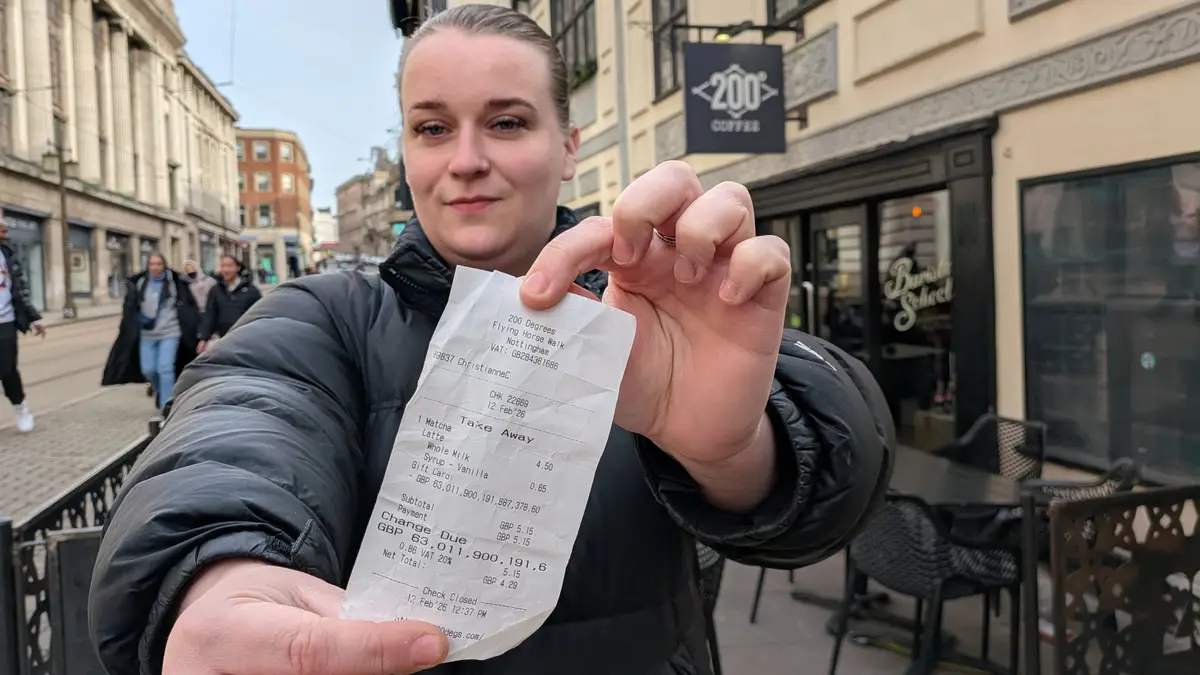 200°
COFFEE
Barista
School
200 Degrees
Flying Horse Walk
Nottingham
VAT: GB284361686
63837 ChristianneC
CHK 22689
12 Feb'26
Take Away
1 Matcha 4.50
Latte
Whole Milk
Syrup - Vanilla 0.65
Gift Card
GBP 63,011,900,191,687,378.60
Subtotal GBP 5.15
Payment GBP 5.15
Change Due
GBP 63,011,900,191,6
0.86 VAT 20% 5.15
Net Total: GBP 4.29
Check Closed
12 Feb'26 12:37 PM